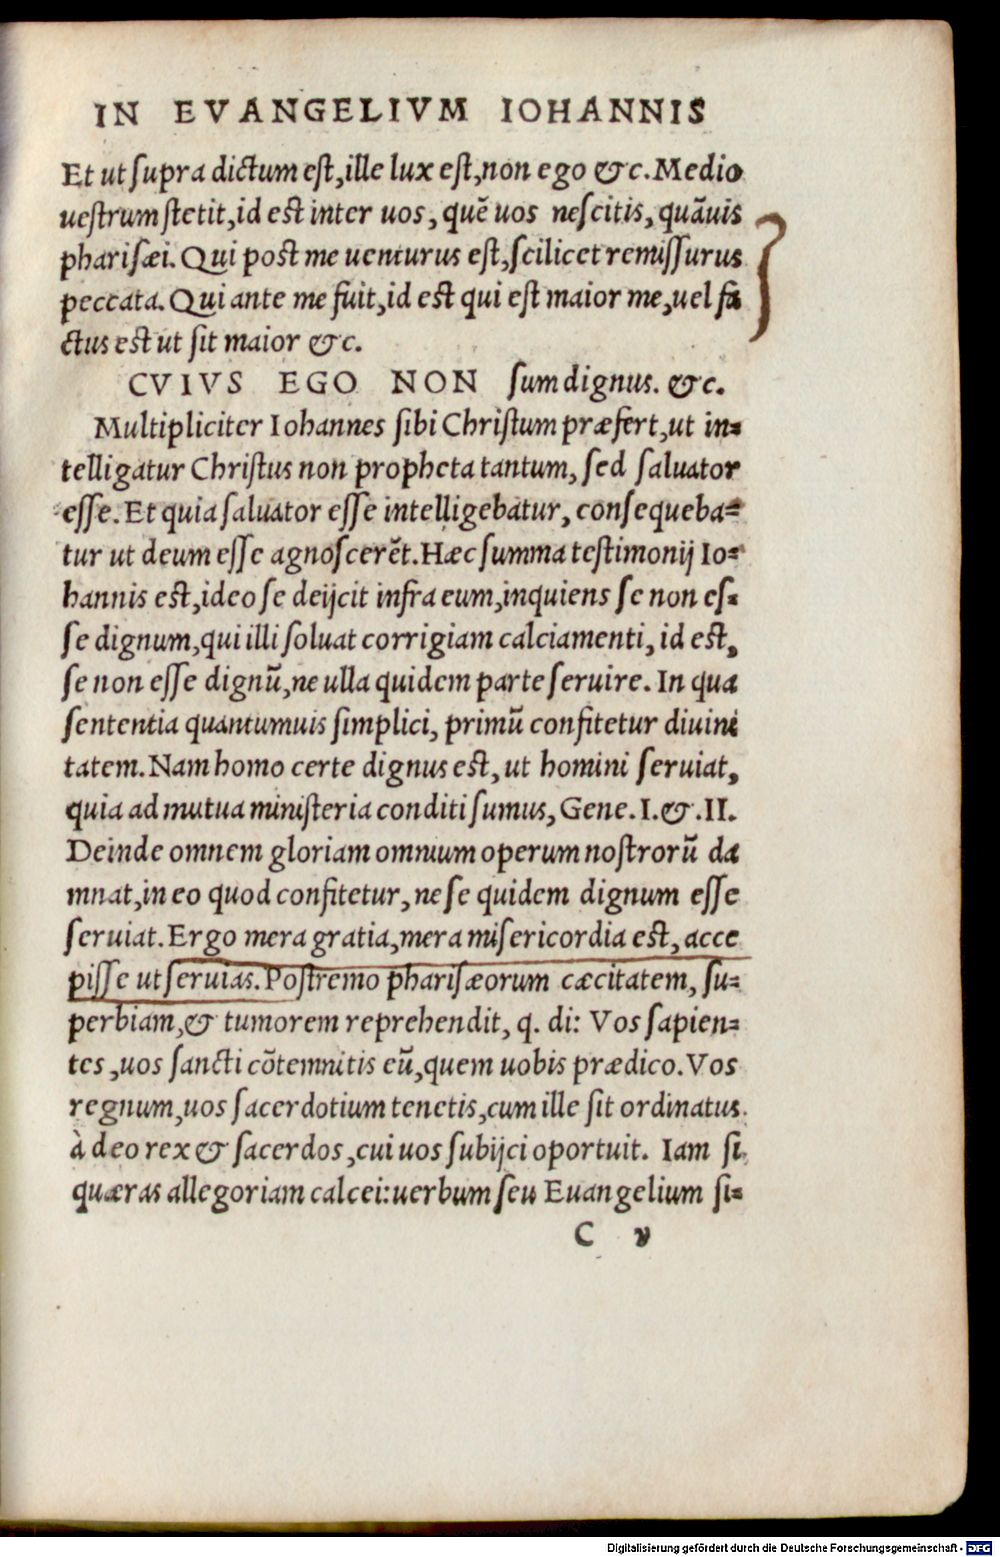 IN EVANGELIVM IOHANNIS
Et ut supra dictum est, ille lux est, non ego &c. Medio
uestrum stetit, id est inter uos, quē uos nescitis, quāuis
pharisæi. Qui post me uenturus est, scilicet remissurus
peccata. Qui ante me fuit, id est qui est maior me, uel fa
ctus est ut sit maior &c.
CVIVS EGO NON sum dignus. &c.
Multipliciter Iohannes sibi Christum præfert, ut in=
telligatur Christus non propheta tantum, sed saluator
esse. Et quia saluator esse intelligebatur, consequeba=
tur ut deum esse agnoscerēt. Hæc summa testimonij Io=
hannis est, ideo se deijcit infra eum, inquiens se non es=
se dignum, qui illi soluat corrigiam calciamenti, id est,
se non esse dignū, ne ulla quidem parte seruire. In qua
sententia quantumuis simplici, primū confitetur diuini
tatem. Nam homo certe dignus est, ut homini seruiat,
quia ad mutua ministeria conditi sumus, Gene. I. & .II.
Deinde omnem gloriam omnium operum nostrorū da
mnat, in eo quod confitetur, ne se quidem dignum esse
seruiat. Ergo mera gratia, mera misericordia est, acce
pisse ut seruias. Postremo pharisæorum cæcitatem, su=
perbiam, & tumorem reprehendit, q. di: Vos sapien=
tes, uos sancti cōtemnitis eū, quem uobis prædico. Vos
regnum, uos sacerdotium tenetis, cum ille sit ordinatus
à deo rex & sacerdos, cui uos subijci oportuit. Iam si
quæras allegoriam calcei: uerbum seu Euangelium si=
C v
Digitalisierung gefördert durch die Deutsche Forschungsgemeinschaft - DFG